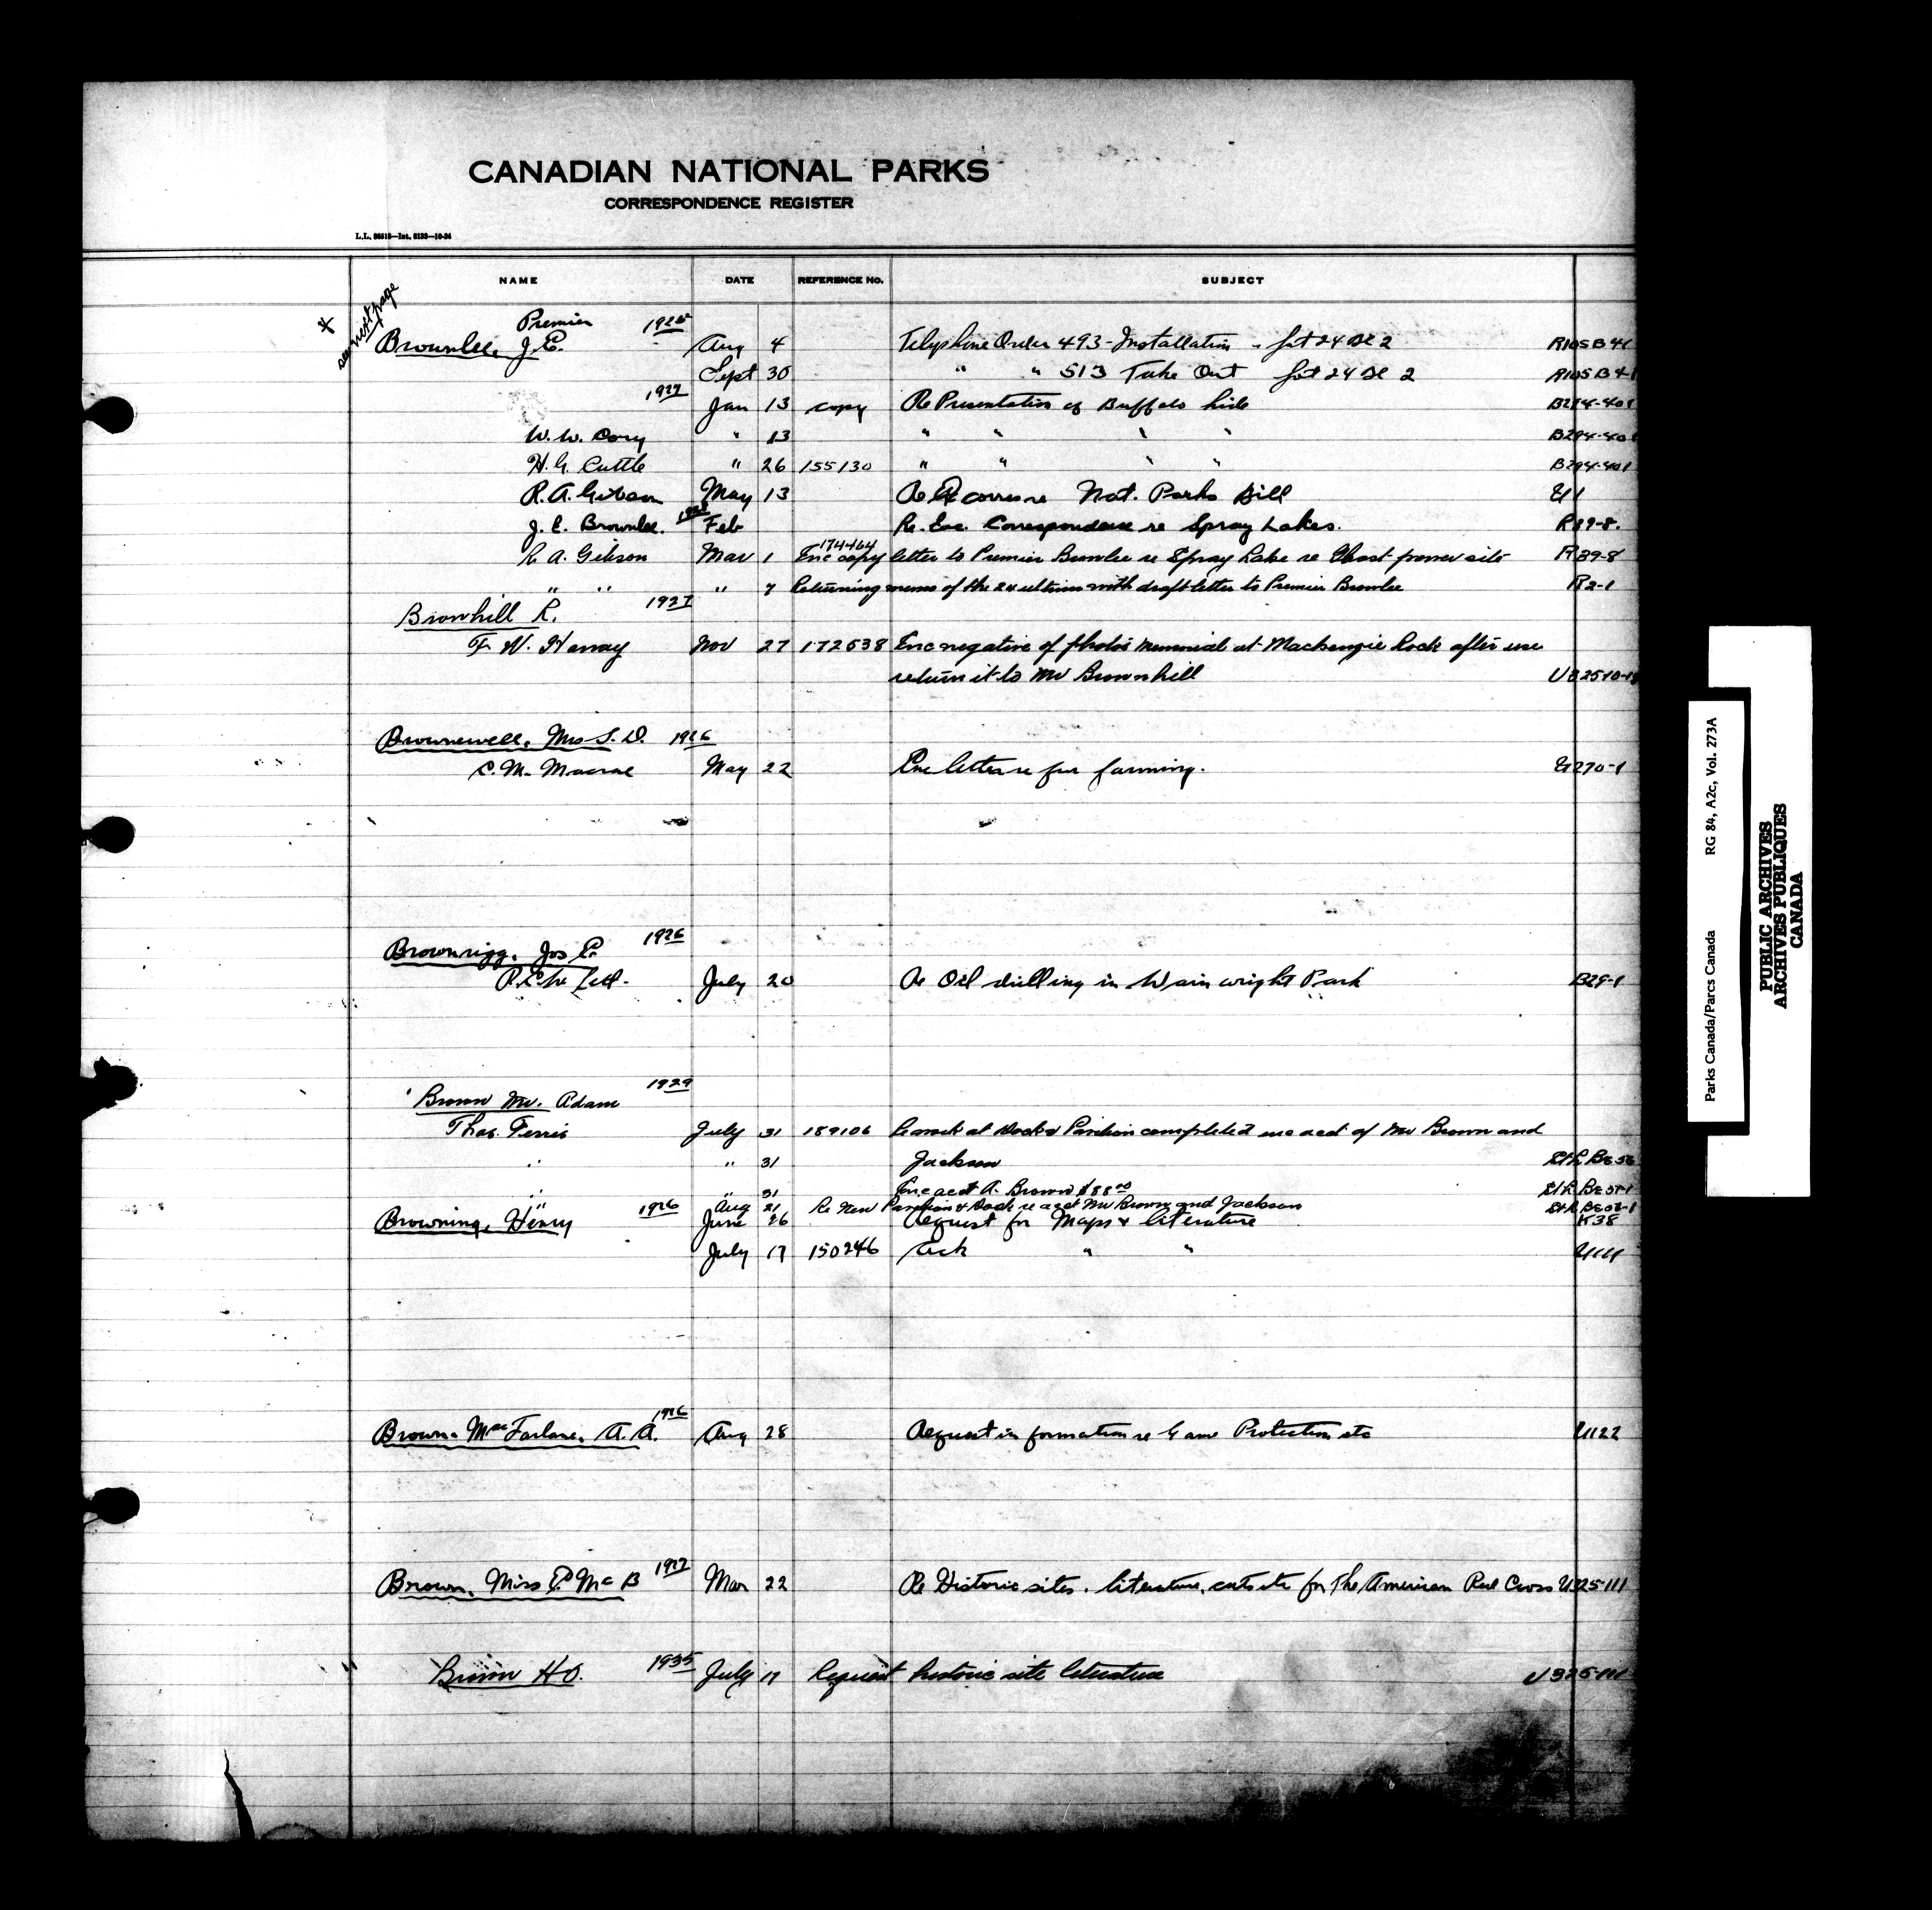 CANADIAN NATIONAL PARKS
CORRESPONDENCE REGISTER
NAME DATE REFERENCE No. SUBJECT
* see next page
Premier
Brownlee, J.E. Aug 4 Telephone Order 493 - Installation - Lot 24 Bl 2 R105 B4-1
Sept 30 " " 513 Take Out Lot 24 Bl 2 R105 B4-1
1927 Jan 13 copy Re Presentation of Buffalo hide B294-401
W.W. Cory " 13 " " " " B294-401
H.G. Cuttle " 26 155130 " " " " B294-401
R.A. Gibson May 13 Re corres re Nat. Parks Bill U1
J.E. Brownlee. 1928 Feb Re. Enc. Correspondence re Spray Lakes. R39-8.
174464
R A. Gibson Mar 1 Enc copy letter to Premier Brownlee re Spray Lake re Ghost power site R39-8
" " " 7 Returning memo of the 24 ultimo with draft letter to Premier Brownlee R2-1
Brownhill R. 1927
F. H. Nov 27 172638 Enc negative of photos Memorial at Mackenzie Rock after use
return it to Mr Brownhill
Brownewell, Mrs S.D. 1926
C.M. Macrae May 22 Enc letter re fur farming. U270-1
Brownrigg, Jos E. 1926
July 20 Re Oil drilling in Wainwright Park B29-1
Brown Mr. Adam 1929
Thos. Ferris July 31 189106 Re work at Dock & Pavilion completed enc acct of Mr Brown and
" " 31 Jackson
" " 31 Enc acct A. Brown $88.00
" Aug 21 Re New Pavilion & Dock re acct Mr Brown and Jackson
Browning, Henry 1926 June 26 Request for Maps & literature K38
July 17 150246 Ack " "
Brown-MacFarlane, A.A. 1926 Aug 28 Request information re Game Protection etc U122
Brown, Miss E. McB 1927 Mar 22 Re Historic sites. literature, cuts etc for The American Red Cross U325-111
Brown H.O. 1935 July 17 Request historic site literature U325-111
Parks Canada/Parcs Canada RG 84, A2c, Vol. 273A
PUBLIC ARCHIVES
ARCHIVES PUBLIQUES
CANADA